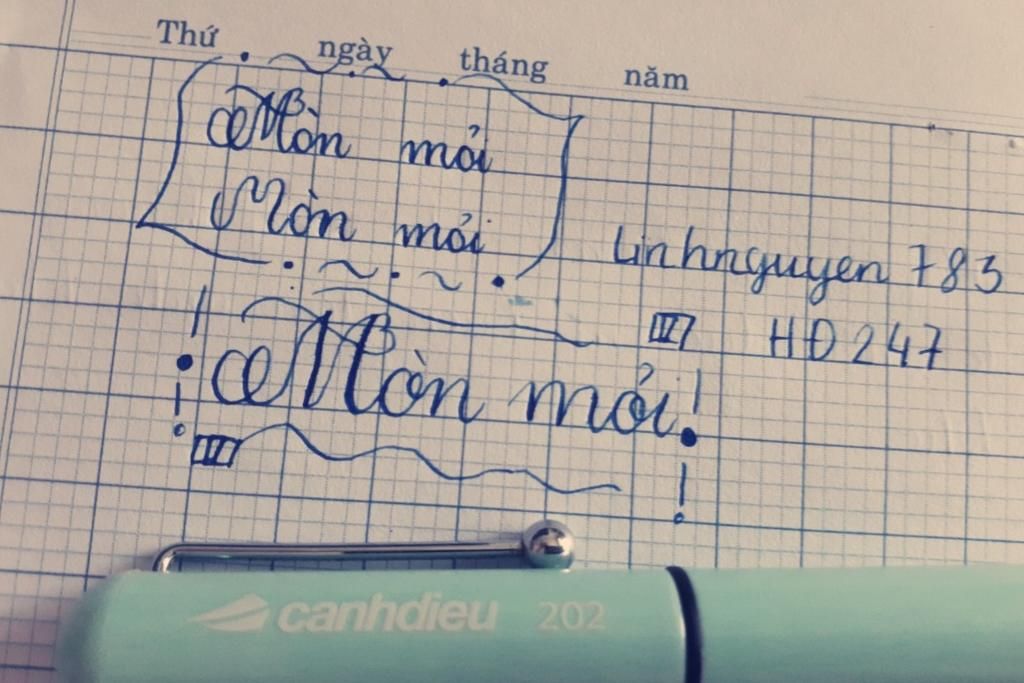 Thứ ngày tháng năm
Mòn mỏi
Mòn mỏi
Linhnguyen 783
HĐ 247
Mòn mỏi!
canhdieu 202